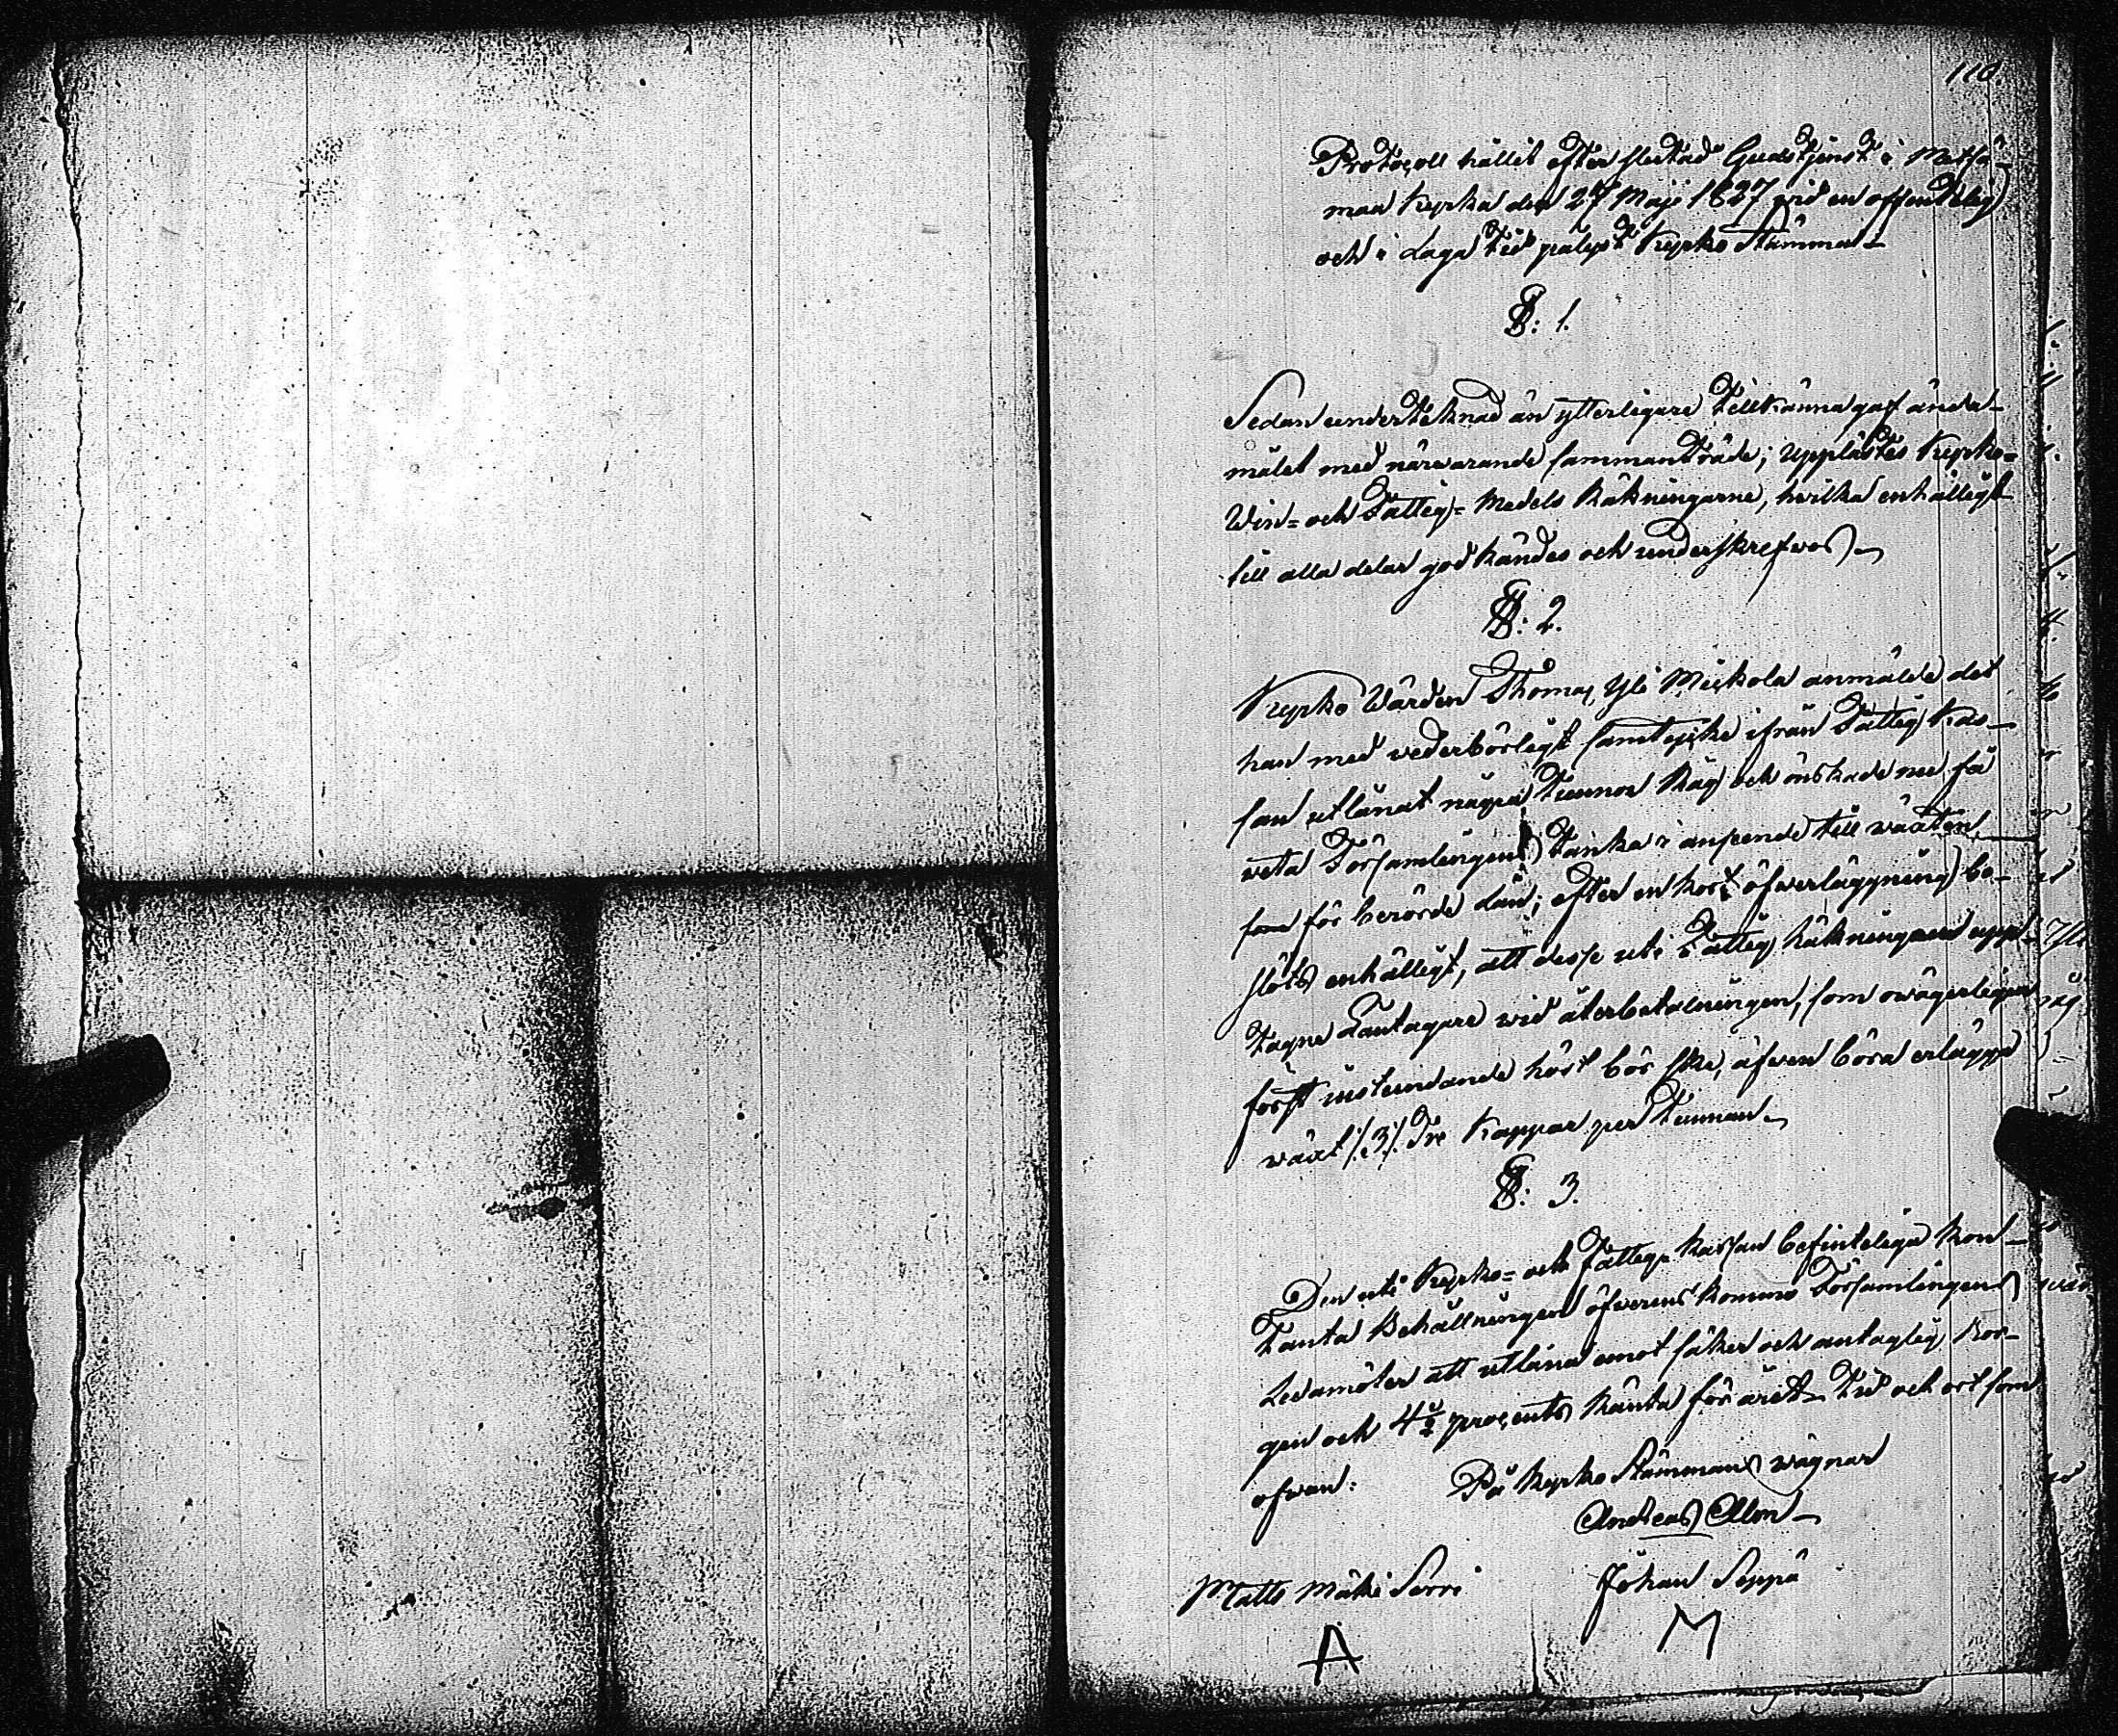 110.
Protocoll hållit efter slutad Gudstjenst i Metsä-
maa Kyrka den 27 Maji 1827 vid en offentelig
och i Laga tid pålyst Kyrko Stämma.
§: 1.
Sedan undertecknad än ytterligare tillkänna gaf ända-
målet med närvarande sammanträde; upplästes Kyrko-
Win- och Fattig- Medels Räkningarne, hvilka enhälligt
till alla delar godkändes och underskrefvos.
§: 2.
Kyrko Wärden Thomas Yli Meskola anmälde det
han med vederbörligt samtycke ifrån Fattig Kas-
san utlånat några Tunnor Råg och önskade nu få
veta Församlingens tanka i anseende till wäxten
för berörde lån; efter en kort öfverläggning be-
slöts enhälligt, att desse uti Fattig Räkningen upp-
tagne Låntagare wid återbetalningen, som owägerligen
först instundande höst bör ske, äfven böra erlägga
wäxt /:3:/ Tre Kappar per Tunnan.
§: 3.
Den uti Kyrko- och Fattig- Kassan befinteliga Kon-
tanta Behållningen öfverens kommo Församlingens
Ledamöter att utlåna emot säker och antaglig Bor-
gen och 4 1/2 procents Ränta för året. Tid och ort som
ofvan:
På Kyrko Stämmans wägnar
Andreas Alm
Matts Mäki Sorri
Johan Seppä
A
M